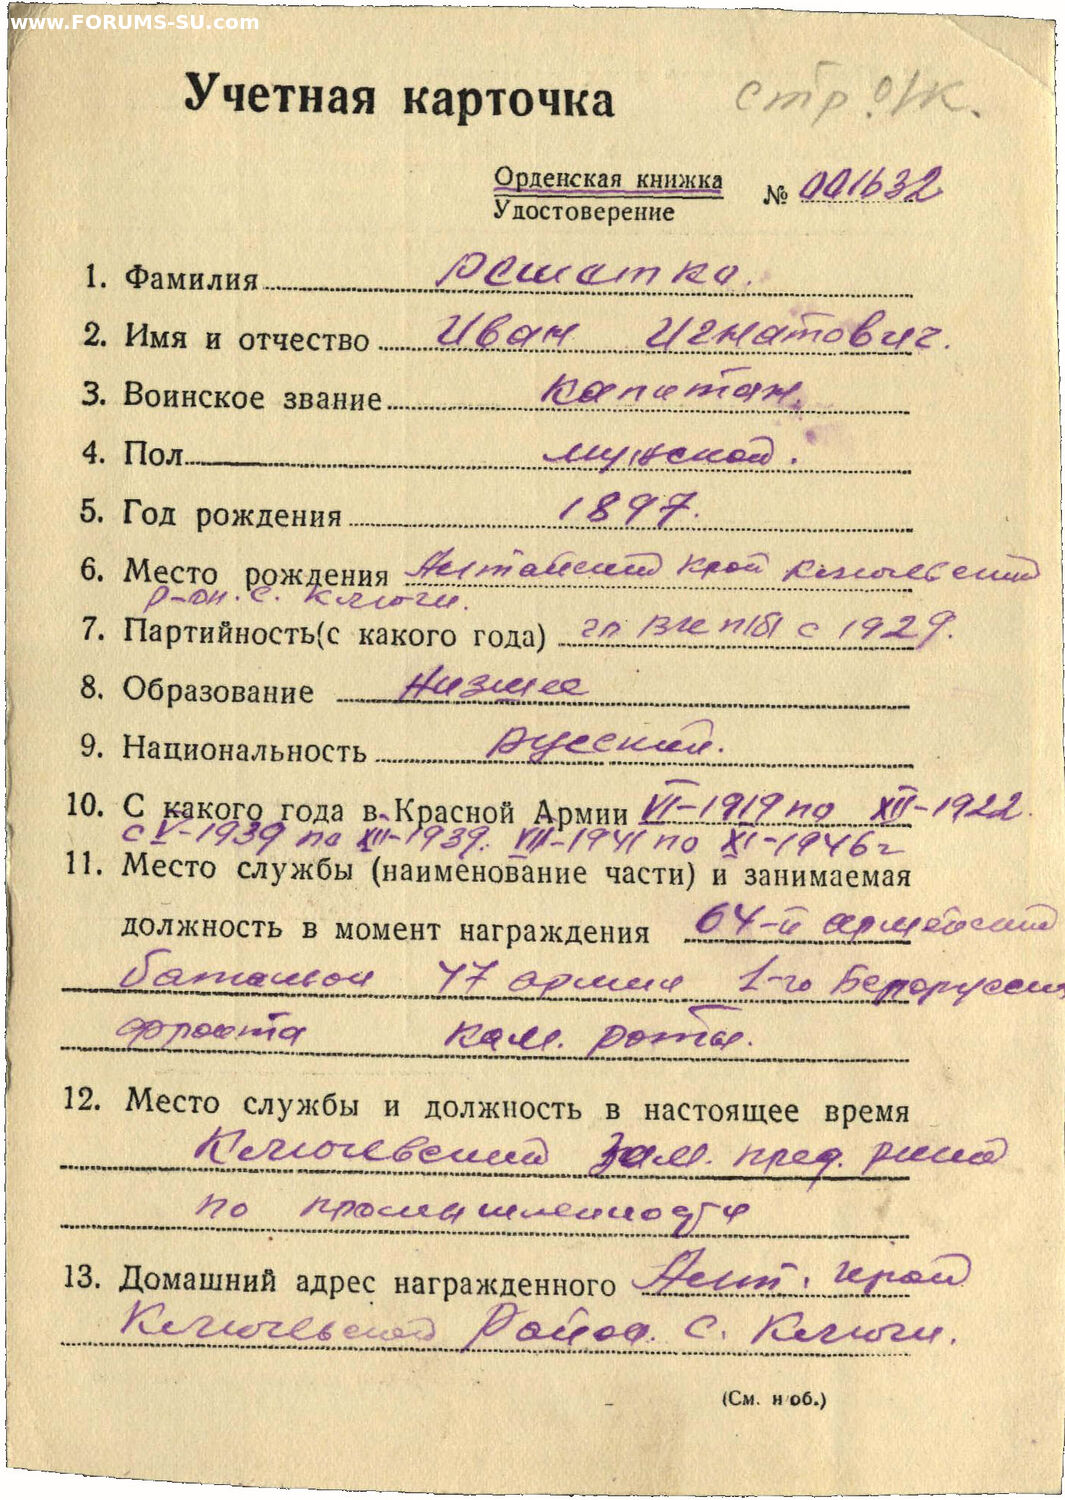 www.FORUMS-SU.com
Учетная карточка стр.
Орденская книжка
Удостоверение № 001632
1. Фамилия Решатка.
2. Имя и отчество Иван Игнатович.
3. Воинское звание капитан.
4. Пол мужской.
5. Год рождения 1897.
6. Место рождения Алтайский край Ключевский
р-он. с. Ключи.
7. Партийность(с какого года) чл ВКП/б/ с 1929.
8. Образование Низшее
9. Национальность русский.
10. С какого года в Красной Армии VI-1919 по XII-1922.
с V-1939 по XII-1939. VII-1941 по XI-1946г
11. Место службы (наименование части) и занимаемая
должность в момент награждения 64-й армейский
батальон 47 армии 1-го Белорусск
фронта ком. роты.
12. Место службы и должность в настоящее время
Ключевский Зам. пред. рика
по промышленности
13. Домашний адрес награжденного Алт. край
Ключевской Район. с. Ключи.
(См. н об.)